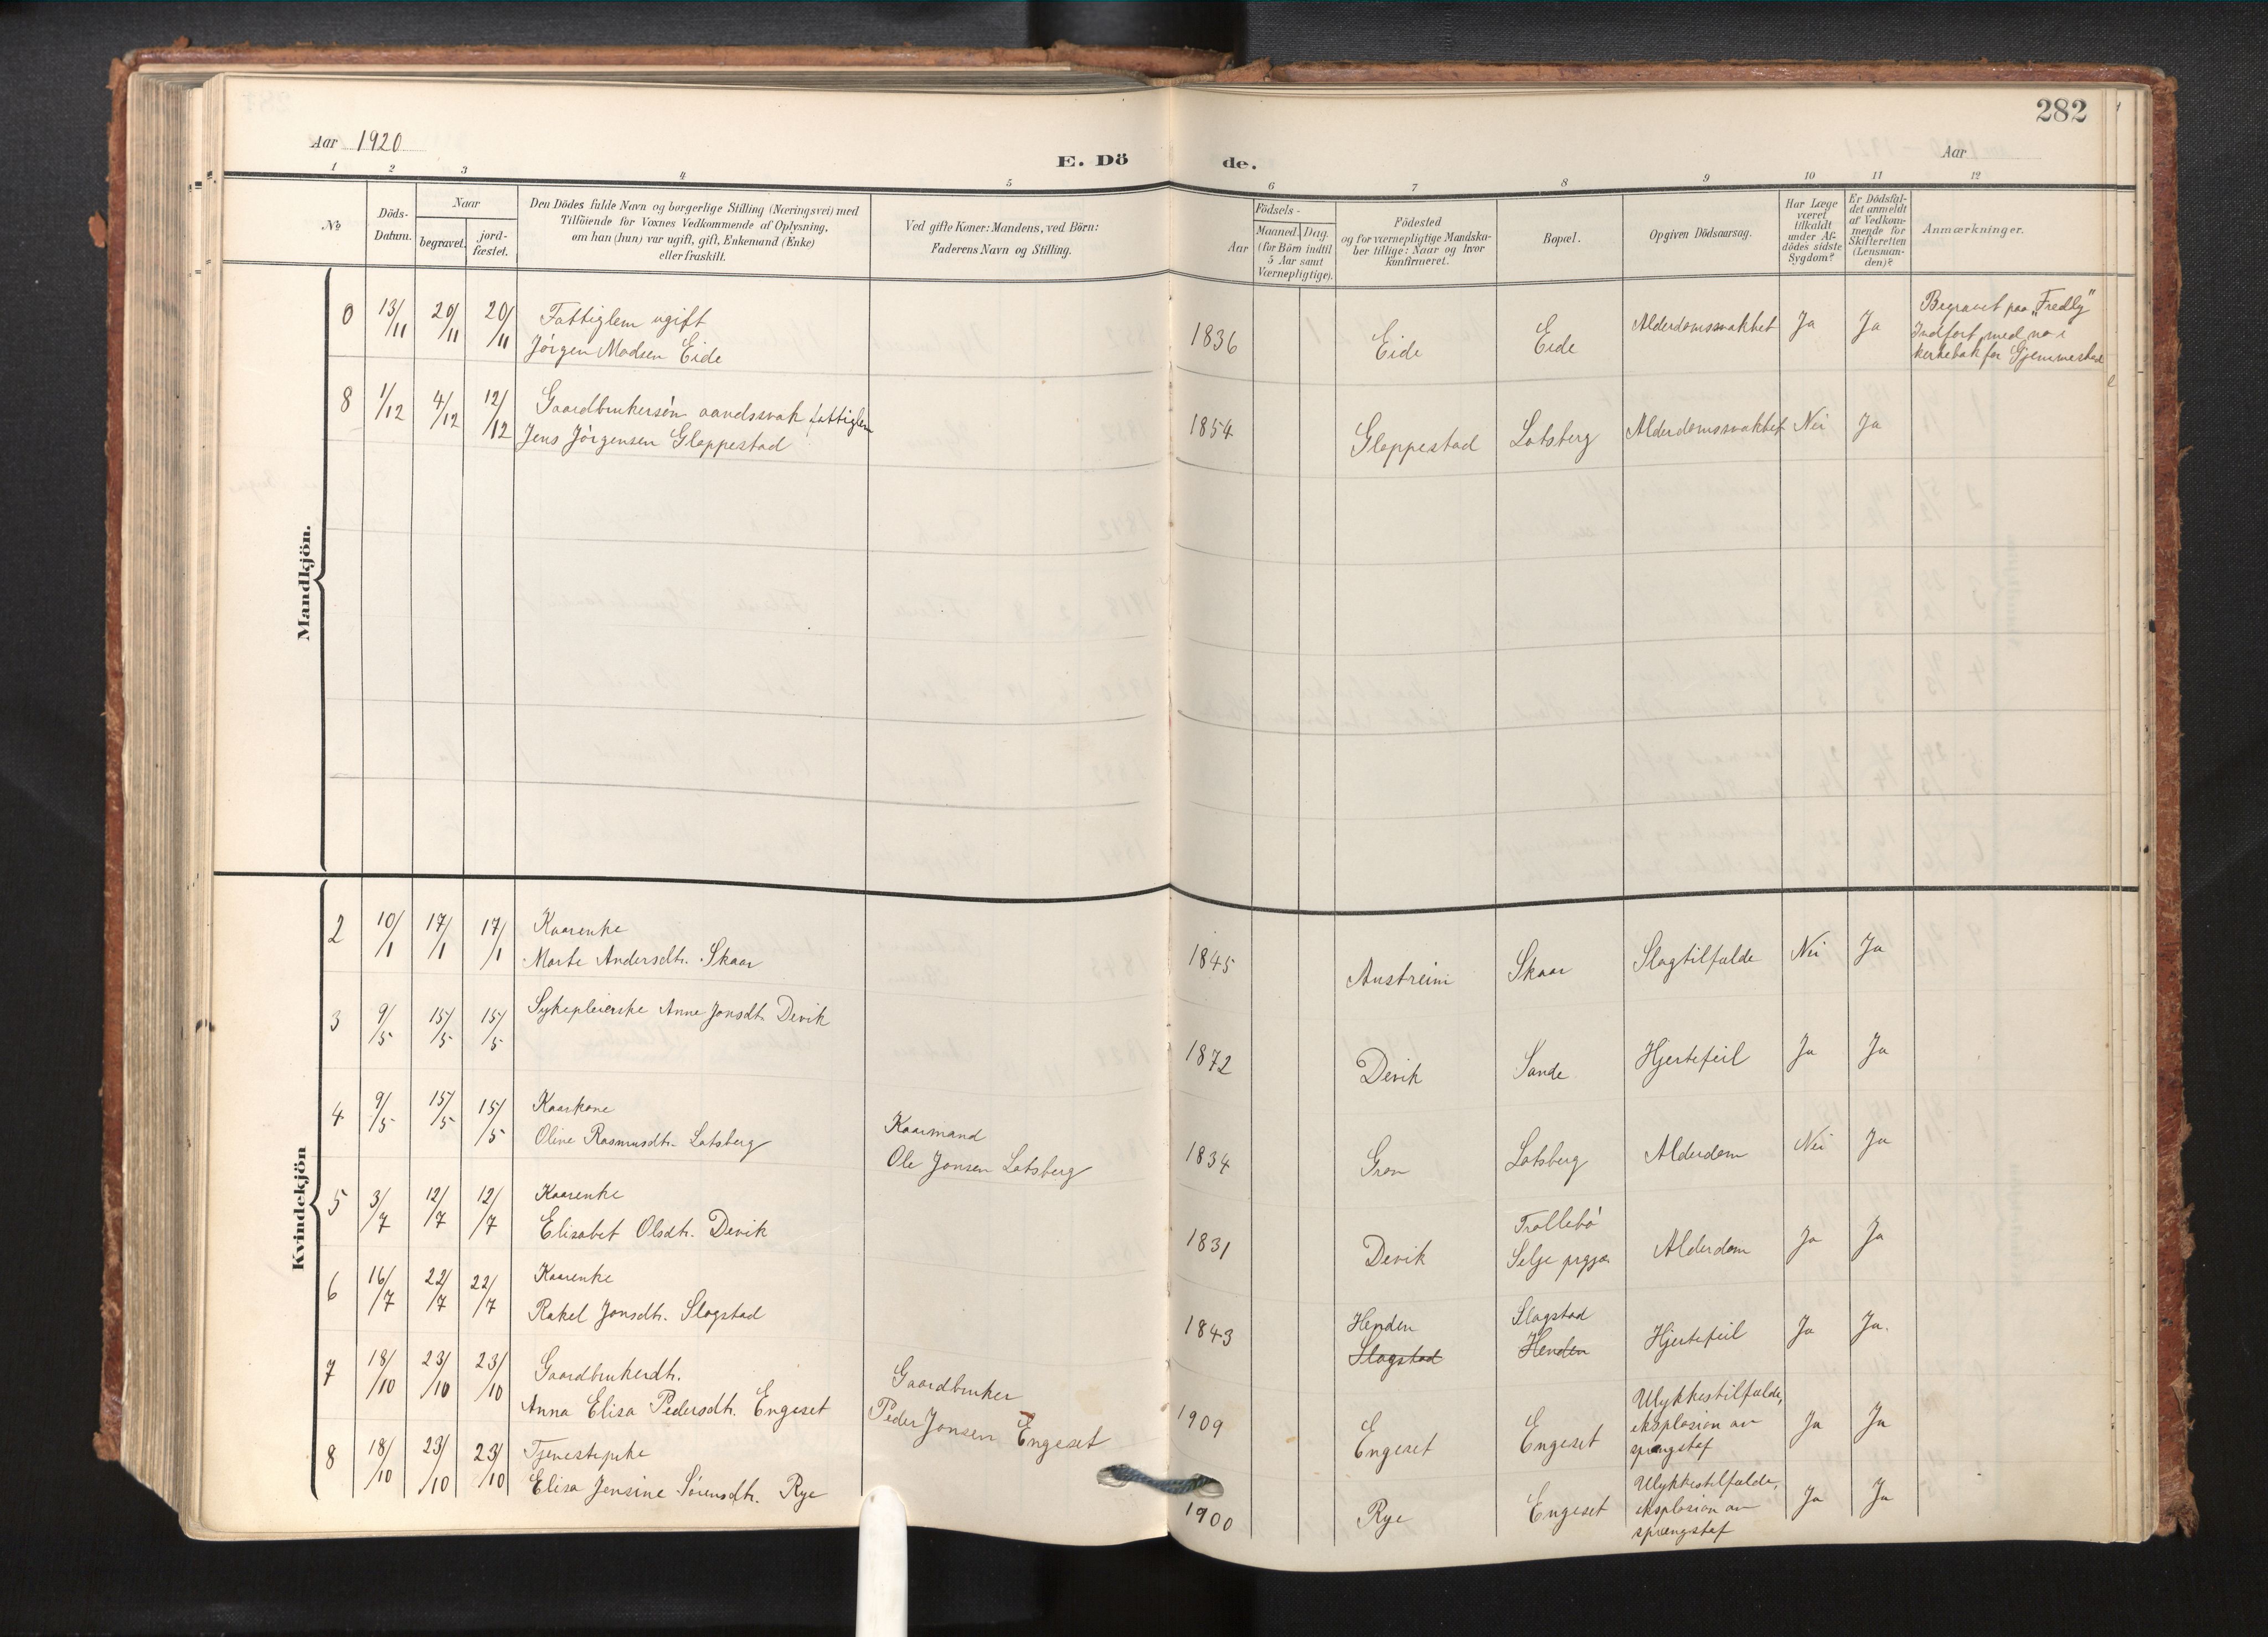 282
Aar 1920
E. Dö de.
Aar
1 2 3 4 5 6 7 8 9 10 11 12
No
Döds-
Datum.
Naar
begravet.
jord-
fæstet.
Den Dödes fulde Navn og borgerlige Stilling (Næringsvei) med
Tilföiende for Voxnes Vedkommende af Oplysning,
om han (hun) var ugift, gift, Enkemand (Enke)
eller fraskilt.
Ved gifte Koner: Mandens, ved Börn:
Faderens Navn og Stilling.
Födsels-
Aar
Maaned. Dag.
(for Börn indtil
5 Aar samt
Værnepligtige).
Födested
og for værnepligtige Mandska-
ber tillige: Naar og hvor
konfirmeret.
Bopæl.
Opgiven Dödsaarsag.
Har Læge
været
tilkaldt
under Af-
dödes sidste
Sygdom?
Er Dödsfal-
det anmeldt
af Vedkom-
mende for
Skifteretten
(Lensman-
den)?
Anmærkninger.
Mandkjön.
0 13/11 20/11 20/11 Fattiglem ugift
Jörgen Madsen Eide
1836 Eide Eide Alderdomssvakhet Ja Ja
Begravet paa „Fredly"
Indfört med no i
kerkebok for Gjemmestad
8 1/12 4/12 12/12 Gaardbrukersön aandssvak fattiglem
Jens Jörgensen Gloppestad
1854 Gloppestad Lotsberg Alderdomssvakhet Nei Ja
Kvindekjön
2 10/1 17/1 17/1 Kaarenke
Marte Andersdtr. Skaar
1845 Austreim Skaar Slagtilfælde Nei Ja
3 9/5 15/5 15/5 Sykepleierske Anne Jonsdtr. Devik
1872 Devik Sande Hjertefeil Ja Ja
4 9/5 15/5 15/5 Kaarkone
Oline Rasmusdtr. Lotsberg
Kaarmand
Ole Jonsen Lotsberg
1834 Gron Lotsberg Alderdom Nei Ja
5 3/7 12/7 12/7 Kaarenke
Elisabet Olsdtr. Devik
1831 Devik
Trollebö
Selje prgja.
Alderdom Ja Ja
6 16/7 22/7 22/7 Kaarenke
Rakel Jonsdtr. Slagstad
1843
Henden
Slagstad
Slagstad
Henden
Hjertefeil Ja Ja.
7 18/10 23/10 23/10 Gaardbrukerdtr.
Anna Elisa Pedersdtr. Engeset
Gaardbruker
Peder Jonsen Engeset
1909 Engeset Engeset
Ulykkestilfælde,
eksplosion av
sprengstof
Ja Ja
8 18/10 23/10 23/10 Tjenestepike
Elisa Jensine Sörensdtr. Rye
1900 Rye Engeset
Ulykkestilfælde,
eksplosion av
sprængstof
Ja Ja